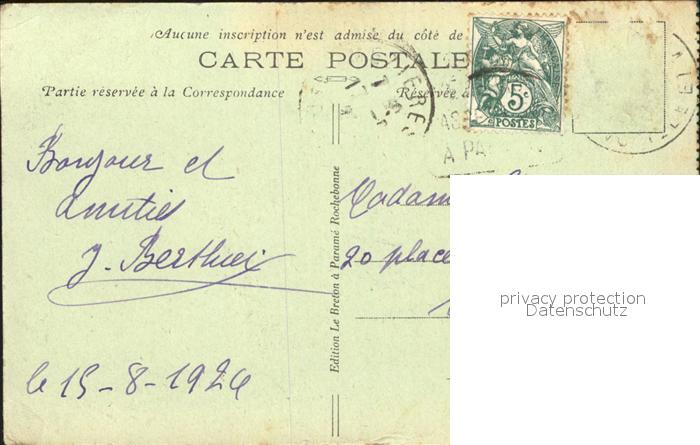 Aucune inscription n'est admise du côté de
CARTE POSTALE
Partie réservée à la Correspondance
Réservée à
5c
POSTES
A PA
Bonjour et
Amitiés
J. Berthier
le 15-8-1924
Edition Le Breton à Paramé Rochebonne
Madam
20 place
privacy protection
Datenschutz